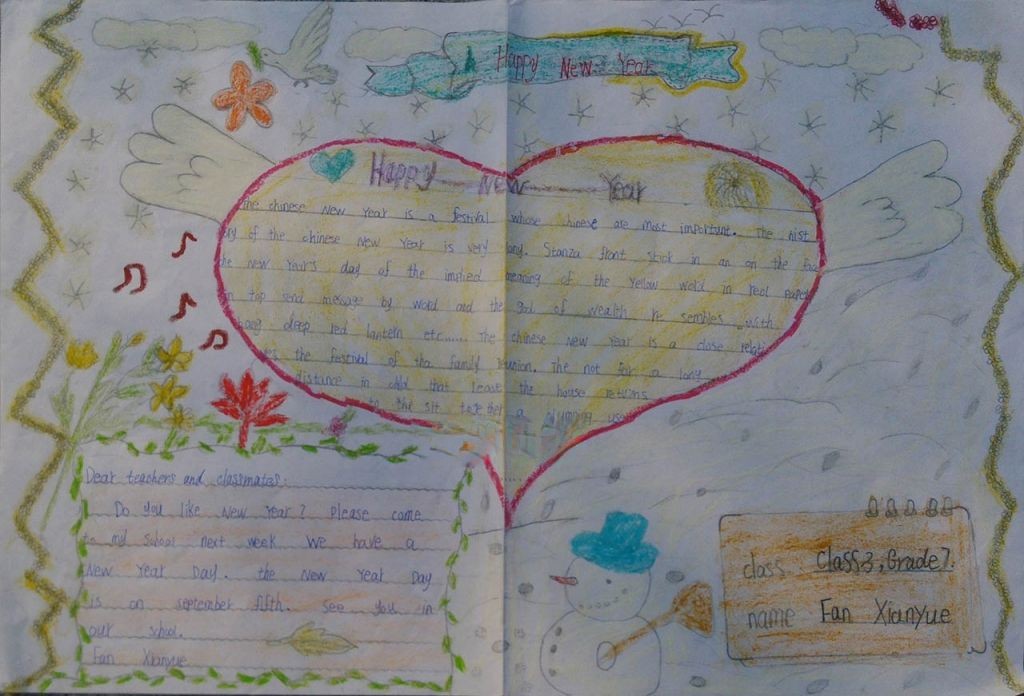 Happy New Year
Happy New Year
the chinese New Year is a festival whose chinese are most important. The hist
ory of the chinese New Year is very long. Stanza front stick in an on the
the new Year's day of the implied meaning of the yellow wold in real paper
on top send message by word and the god of wealth he sembles with
hang deep red lantern etc...... The chinese new Year is a close relatic
the festival of tha family reunion. The not for a long
distance in child that lease the house returns
to the sit together a
Dear teachers and classmates:
Do you like New Year? Please come
to my school next week We have a
New Year Day. the New Year Day
is on september fifth. See you in
our school.
Fan Xianyue
class: Class3, Grade7.
name Fan Xianyue